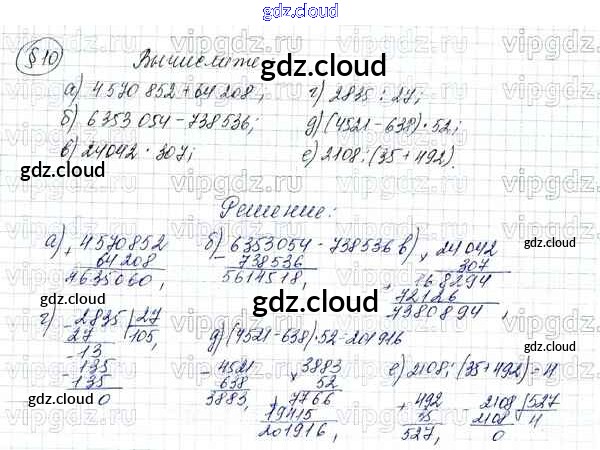 gdz.cloud
§10 Вычислите
а) 4570 852 + 64 208; г) 2835 : 27;
б) 6353 054 - 738536; д) (4521 - 638) · 52;
в) 24042 · 307; е) 2108 : (35 + 492).
Решение:
а) + 4570852
64 208
4635060,
б) 6353054 - 738536
- 738536
5614518,
в) × 24042
307
168294
72126
7380894,
г) - 2835 | 27
27 105,
- 13
- 135
135
0
д) (4521 - 638) · 52 = 201916
- 4521
638
3883,
× 3883
52
7766
19415
201916,
е) 2108 : (35 + 492) = 4
+ 492
35
527,
- 2108 | 527
2108 4
0
gdz.cloud
vipgdz.ru